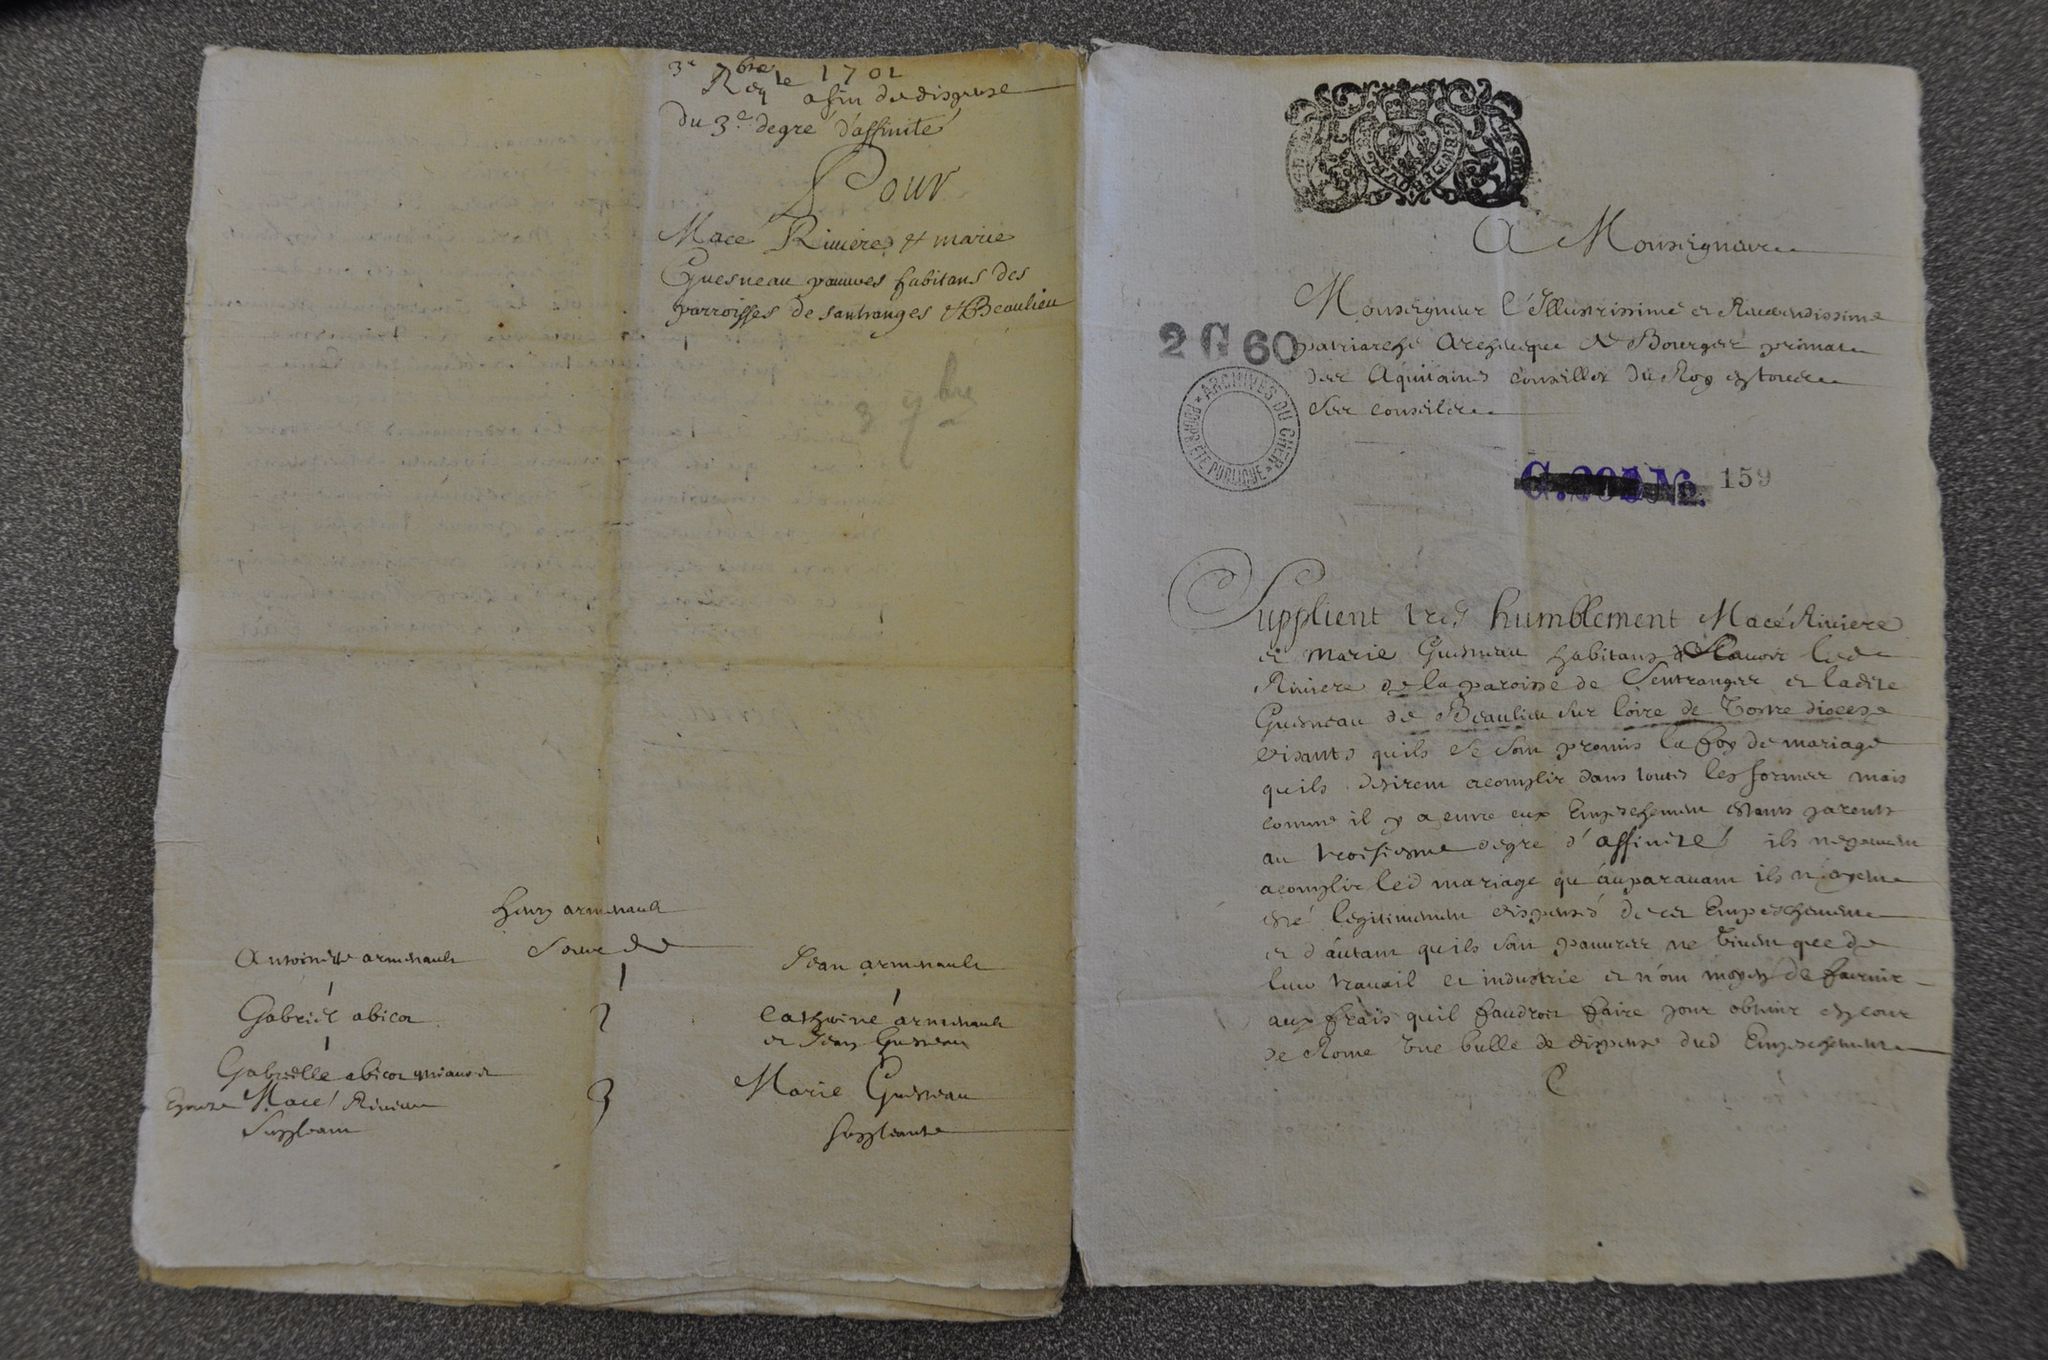 3e 7bre 1701
Reqte afin de dispense
du 3e degré d'affinité
Pour
Macé Riviere et marie
Guesneau pauvres habitans des
parroisses de santranges et Beaulieu
3 7bre
henry armenault
Souche
Antoinette armenault
1
Jean armenault
Gabriel abicot
2
Catherine armenault
et Jean Guesneau
Gabrielle abicot
Espouze Macé Riviere
Suppliant
3
Marie Guesneau
suppliante
A Monseigneur
Monseigneur l'Illustrissime et Reverendissime
patriarche Archeveque de Bourges primat
des Aquitaines conseiller du Roy en tous
ses conseils
2 G 60
ARCHIVES DU CHER
PROPRIÉTÉ PUBLIQUE
G. No. 159
Supplient tres humblement Macé Riviere
et Marie Guesneau habitans Scavoir led
Riviere de la paroisse de Sentranges et ladite
Guesneau de Beaulieu sur loire de Vostre diocese
disants quils se sont promis la foy de mariage
quils desirent acomplir dans toutes les formes mais
comme il y a entre eux Empeschement estants parents
au troisiesme degré d'affinité ils ne peuvent
acomplir led mariage qu'auparavant ils n'ayent
esté legitimement dispensés de cet Empeschement
et d'autant quils sont pauvres ne vivent que de
leur travail et industrie et n'ont moyen de fournir
aux frais quil faudroit faire pour obtenir en cour
de Rome une bulle de dispense dud Empeschement
C